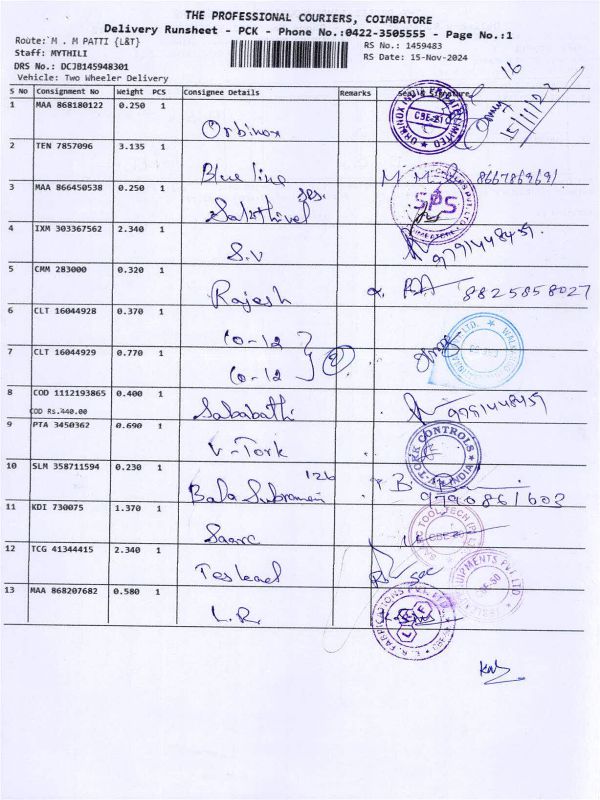 THE PROFESSIONAL COURIERS, COIMBATORE
Delivery Runsheet - PCK - Phone No.:0422-3505555 - Page No.:1
Route: M . M PATTI {L&T}
RS No.: 1459483
Staff: MYTHILI
RS Date: 15-Nov-2024
DRS No.: DCJB145948301
Vehicle: Two Wheeler Delivery
16
S No Consignment No Weight PCS Consignee Details Remarks Seal&Signature
1 MAA 868180122 0.250 1 Orbinox
2 TEN 7857096 3.135 1 Blue line 8667869691
3 MAA 866450538 0.250 1 Sakthivel SPS
4 IXM 303367562 2.340 1 S.V 9791448459
5 CMM 283000 0.320 1 Rajesh 8825858027
6 CLT 16044928 0.370 1 CO-12
7 CLT 16044929 0.770 1 CO-12
8 COD 1112193865 0.400 1 Sababathi 9791448459
COD Rs.440.00
9 PTA 3450362 0.690 1 V-Tork V-TORK CONTROLS
10 SLM 358711594 0.230 1 Bala Subramani 126 9790861603
11 KDI 730075 1.370 1 Saarc
12 TCG 41344415 2.340 1
13 MAA 868207682 0.580 1 L.R.